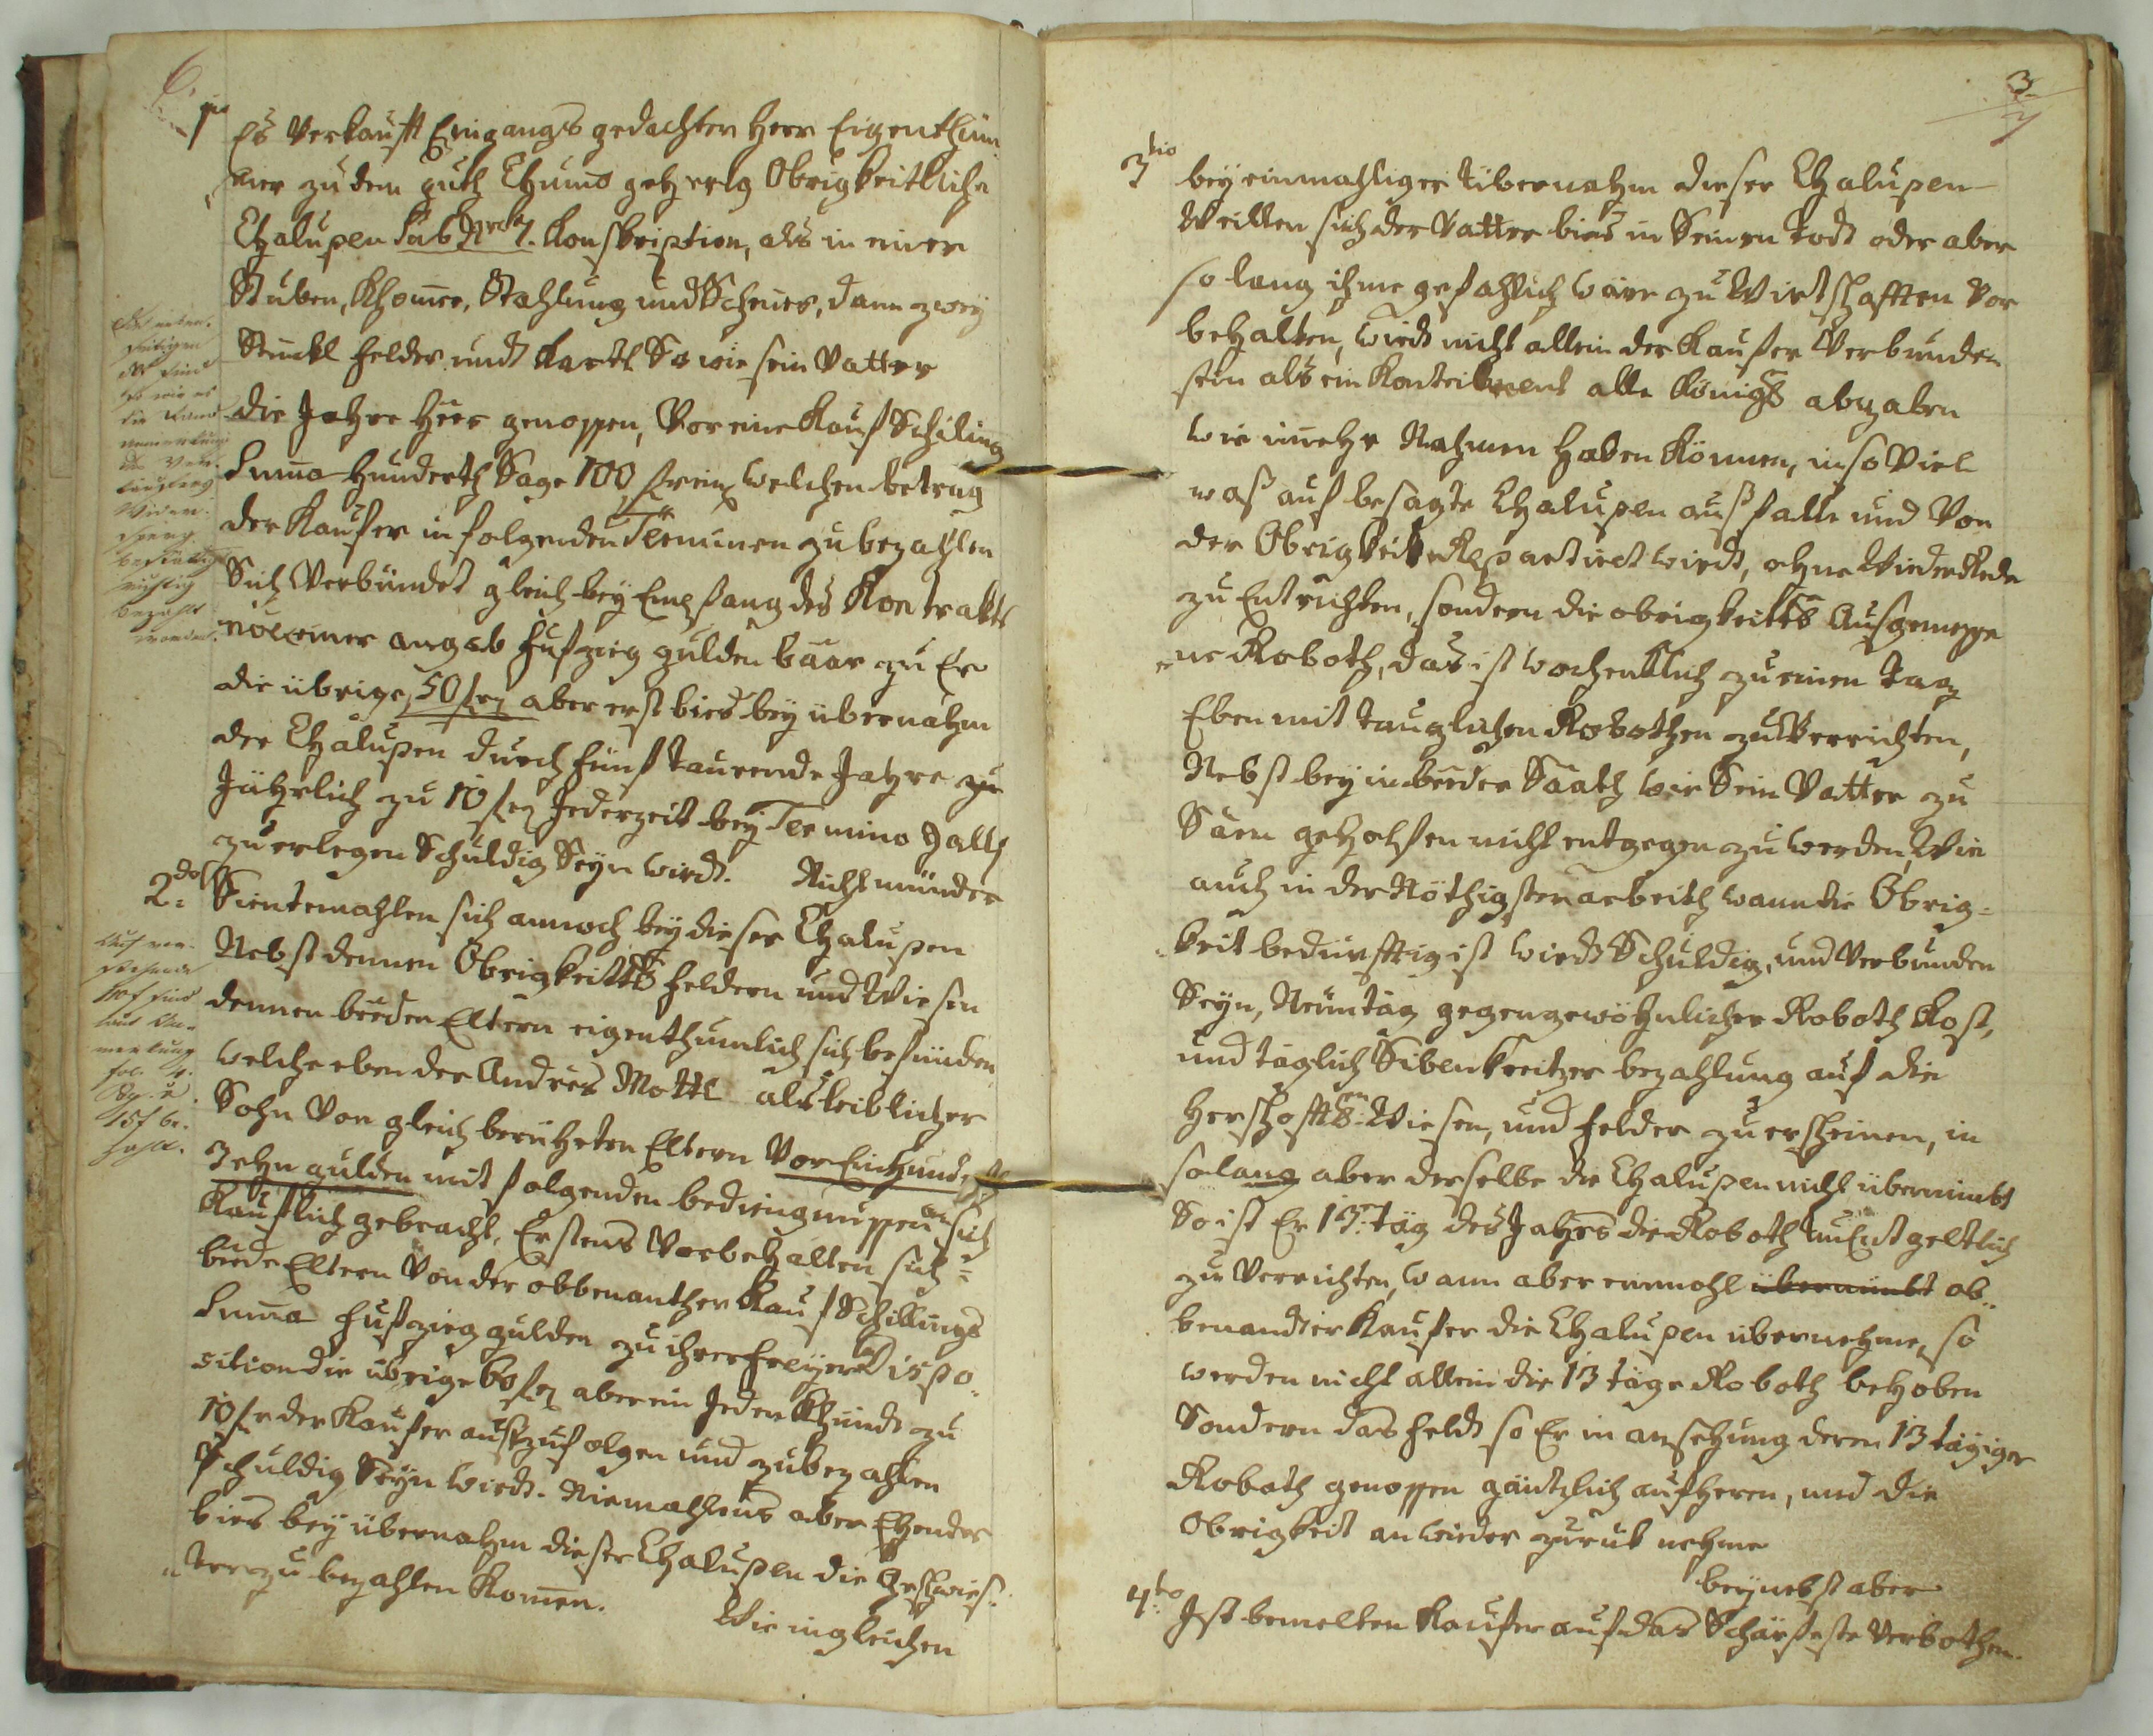 6.
1mo Es Verkaufft Eingangs gedachter Herr Eigenthüm
mer zu dem guth Chumo gehoerig Obrigkeitliche
Chalupen Sub Nro 7. Konskription, als in einer
Stuben, Khamer, Stahlung und Scheuer, dann zwey
Stuckl Felder und Gartl So wie sein Vatter
die Jahre Hier genossen, Vor eine Kauf Schiling
Suma Hunderth Sage 100 f rein welchen betrag
der Kaufer in folgenden Terminen zu bezahlen
Sich Verbündet gleich bey Empfang des Kontrakts
einer angab Fufzieg gulden baar zu Er
die übrige 50 f aber erst bies bey übernahm
der Chalupen durch fünf Taurende Jahre zu
Jährlich zu 10 f Jederzeit bey Termino Galli
zu erlegen Schuldig Seyn wird. Nicht münder
2do Sientemahlen sich annoch bey dieser Chalupen
Nebst dennen Obrigkeitl Feldern und Wiesen
dennen beeden Eltern eigenthumlich sich befünden
welche eben der Andres Mottl als leiblicher
Sohn Von gleich beruhrten Eltern Vor Einhundert
Zehn gulden mit folgenden bediengnussen an sich
Kauflich gebracht, Erstens Vorbehalten sich
beede Eltern Von der obbenanther Kauf Schillings
Suma Fufzieg gulden zu ihrer Freyen Dispo-
sition die übrige 60 f aber ein Jeden Khind zu
10 f der Kaufer auszufolgen und zu bezahlen
Schuldig Seyn wird. Niemahlens aber Ehender
bies bey übernahm dieser Chalupen die Geschwies-
ter zu bezahlen Komen.
Wie ingleichen
so wie es
die
Wieder
richtig
bezahlt
worden.
Auch
sind
laut An-
merkung
fol. 4.
15 f be-
zahlt.
3
7
3tio bey einmahliger Übernahm dieser Chalupen
Weillen sich der Vatter bies in Seinen Todt oder aber
so lang ihme gefahlich wäre zu Wirtschafften Vor
behalten, wird nicht allein der Kaufer Verbunden
sein als ein Kontribuent alle Königl abgaben
wie imehr Nahmen haben Können, in so Viel
was auf besagte Chalupen ausfalle und Von
der Obrigkeit Repartiret wird, ohne Wieder Rede
zu Entrichten, sondern die obrigkeitl Ausgemesse
ne Roboth, das ist wochentlich zu einen Tag
Eben mit tauglichen Robothen zu Verrichten,
Nebst bey in beeder Saath wie Sein Vatter zu
Säen geholfen nicht entgegen zu werden, Wie
auch in der Nöthigsten arbeith wann die Obrig-
keit bedürfftig ist wird Schuldig, und Verbunden
Seyn, Neuntäg gegen gewöhnlicher Roboth Kost,
und täglich Siben Kreitzer bezahlung auf die
Herschafftl Wiesen, und Felder zu erscheinen, in
solang aber derselbe die Chalupen nicht übernimbt
So ist Er 13 Täg des Jahrs die Roboth UnEntgeltlich
zu Verrichten, wann aber einmohl übernimbt ob-
benandter Kaufer die Chalupen übernehme, so
werden nicht allein die 13 täge Roboth behoben
Sondern das Feldt so Er in ansehung deren 13 tägiger
Roboth genossen gäntzlich aufheren, und die
Obrigkeit an wieder zuruk nehme
beynebst aber
4to Ist bemelten Kaufer auf das Schärfeste Verbothen